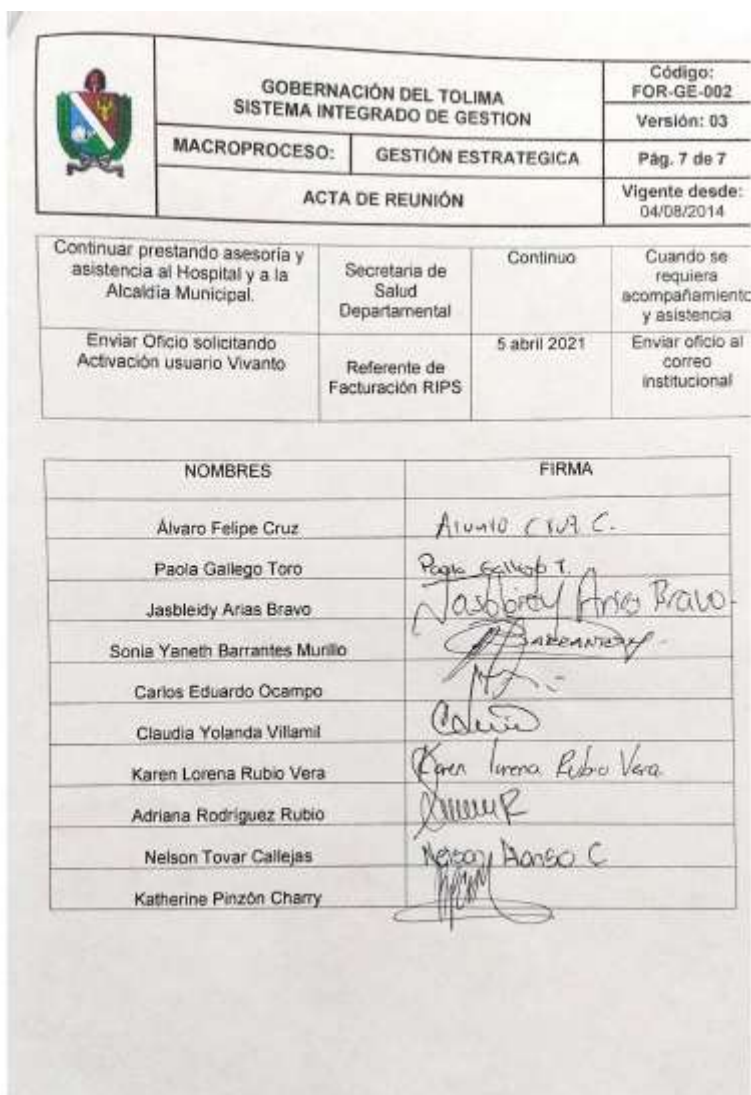 GOBERNACIÓN DEL TOLIMA
SISTEMA INTEGRADO DE GESTION
Código:
FOR-GE-002
Versión: 03
MACROPROCESO:
GESTIÓN ESTRATEGICA
Pág. 7 de 7
ACTA DE REUNIÓN
Vigente desde:
04/08/2014
Continuar prestando asesoría y
asistencia al Hospital y a la
Alcaldía Municipal.
Secretaria de
Salud
Departamental
Continuo
Cuando se
requiera
acompañamiento
y asistencia
Enviar Oficio solicitando
Activación usuario Vivanto
Referente de
Facturación RIPS
5 abril 2021
Enviar oficio al
correo
institucional
NOMBRES
FIRMA
Álvaro Felipe Cruz
Cruz C.
Paola Gallego Toro
Paola Gallego T.
Jasbleidy Arias Bravo
Jasbleidy Arias Bravo
Sonia Yaneth Barrantes Murillo
Carlos Eduardo Ocampo
Claudia Yolanda Villamil
Karen Lorena Rubio Vera
Karen lorena Rubio Vera
Adriana Rodríguez Rubio
Nelson Tovar Callejas
Nelson C
Katherine Pinzón Charry